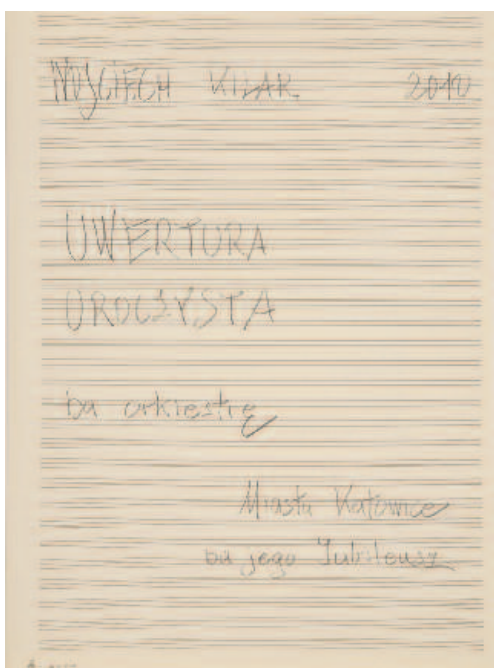 WOJCIECH KILAR 2010
UWERTURA
UROCZYSTA
na orkiestrę
Miastu Katowice
na jego Jubileusz